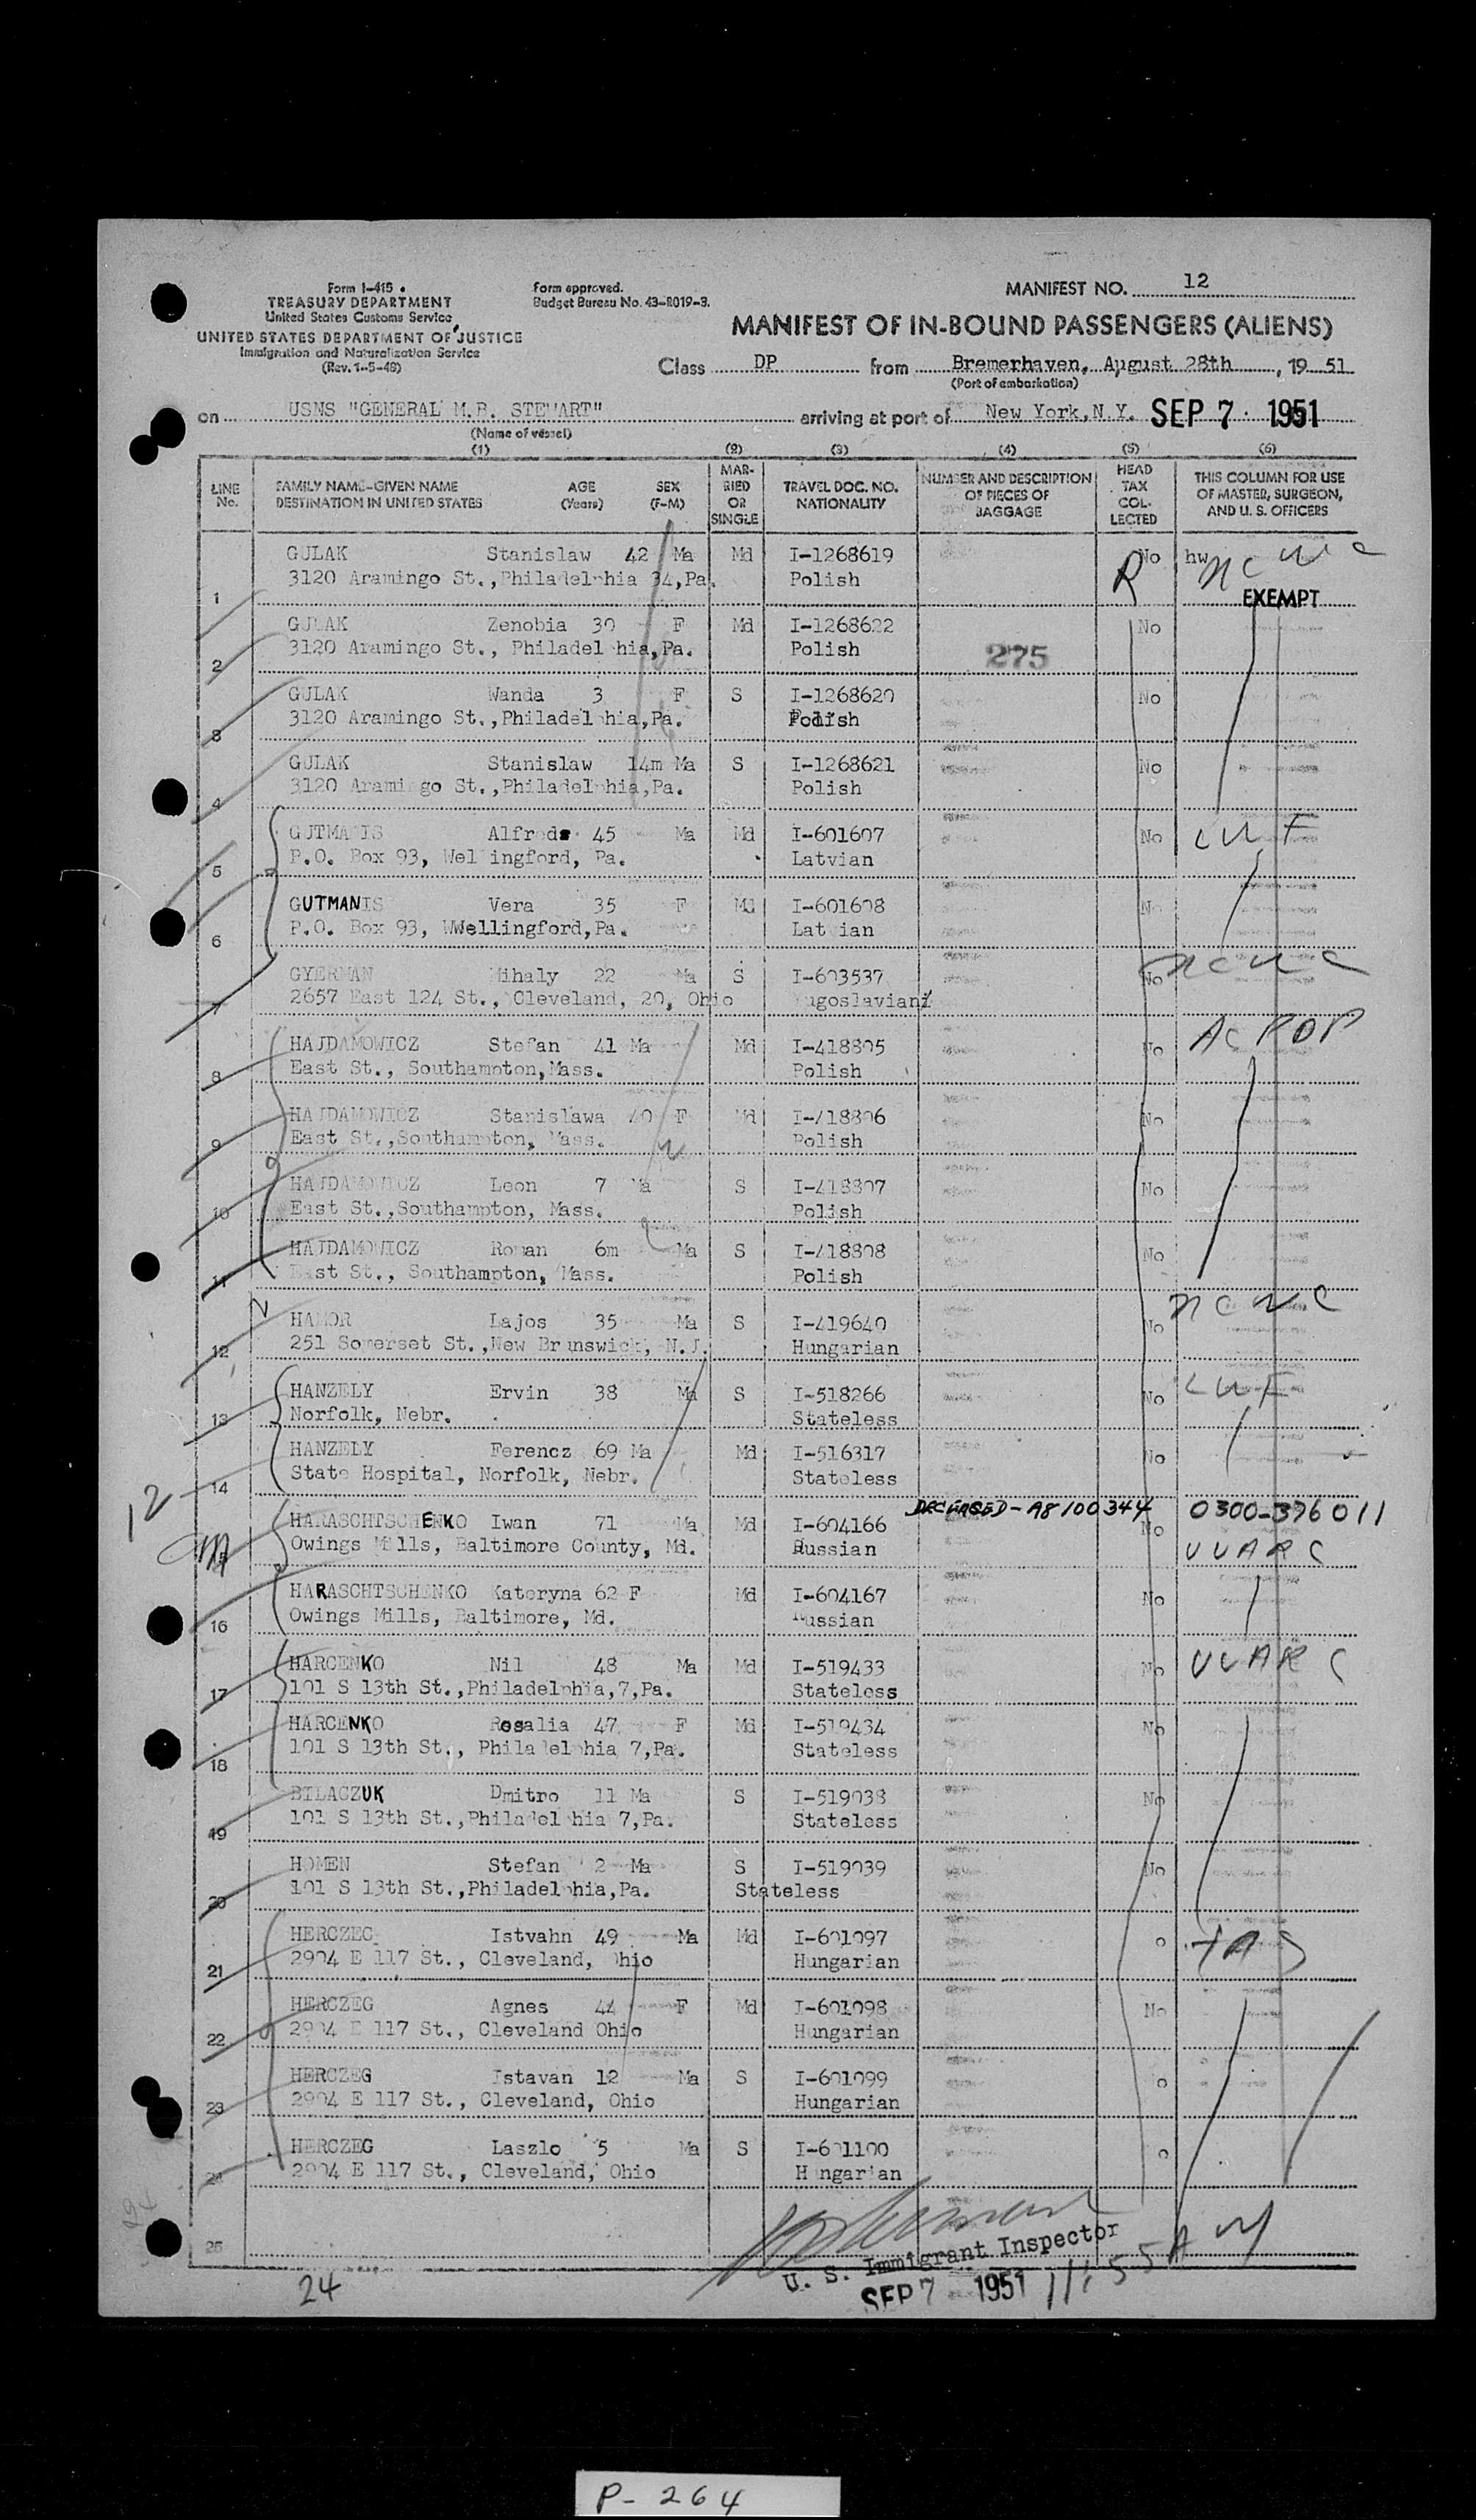 Form I-415
TREASURY DEPARTMENT
United States Customs Service
UNITED STATES DEPARTMENT OF JUSTICE
Immigration and Naturalization Service
(Rev. 1-5-48)
Form approved.
Budget Bureau No. 43-R019-3.
MANIFEST NO. 12
MANIFEST OF IN-BOUND PASSENGERS (ALIENS)
Class DP from Bremerhaven, August 28th, 19 51
(Port of embarkation)
on USNS "GENERAL M.B. STEWART" arriving at port of New York, N.Y. SEP 7 1951
(Name of vessel)
(1) (2) (3) (4) (5) (6)
LINE No. FAMILY NAME-GIVEN NAME DESTINATION IN UNITED STATES AGE (Years) SEX (F-M) MARRIED OR SINGLE TRAVEL DOC. NO. NATIONALITY NUMBER AND DESCRIPTION OF PIECES OF BAGGAGE HEAD TAX COLLECTED THIS COLUMN FOR USE OF MASTER, SURGEON, AND U. S. OFFICERS
GULAK Stanislaw 42 Ma Md I-1268619 No hw ncwc
1 3120 Aramingo St.,Philadelphia 34,Pa. Polish R EXEMPT
GULAK Zenobia 30 F Md I-1268622 No
2 3120 Aramingo St., Philadelphia,Pa. Polish 275
GULAK Wanda 3 F S I-1268620 No
3 3120 Aramingo St.,Philadelphia,Pa. Polish
GULAK Stanislaw 14m Ma S I-1268621 No
4 3120 Aramingo St.,Philadelphia,Pa. Polish
GUTMANIS Alfreds 45 Ma Md I-601607 No LWF
5 P.O. Box 93, Wellingford, Pa. Latvian
GUTMANIS Vera 35 F Md I-601608 No
6 P.O. Box 93, WWellingford,Pa. Latvian
GYERMAN Mihaly 22 Ma S I-603537 No ncwc
7 2657 East 124 St., Cleveland, 20, Ohio Yugoslavian
HAJDAMOWICZ Stefan 41 Ma Md I-418805 No AC POP
8 East St., Southampton,Mass. Polish
HAJDAMOWICZ Stanislawa 40 F Md I-418806 No
9 East St.,Southampton, Mass. Polish
HAJDAMOWICZ Leon 7 Ma S I-418807 No
10 East St.,Southampton, Mass. Polish
HAJDAMOWICZ Roman 6m Ma S I-418808 No
11 East St., Southampton, Mass. Polish
HAMOR Lajos 35 Ma S I-419640 No ncwc
12 251 Somerset St.,New Brunswick, N.J. Hungarian
HANZELY Ervin 38 Ma S I-518266 No LWF
13 Norfolk, Nebr. Stateless
HANZELY Ferencz 69 Ma Md I-516317 No
14 State Hospital, Norfolk, Nebr. Stateless
12
DECEASED - A8100344 0300-396011
HARASCHTSCHENKO Iwan 71 Ma Md I-604166 No
Owings Mills, Baltimore County, Md. Russian UUARC
HARASCHTSCHENKO Kateryna 62 F Md I-604167 No
16 Owings Mills, Baltimore, Md. Russian
HARCENKO Nil 48 Ma Md I-519433 No UUARC
17 101 S 13th St.,Philadelphia,7,Pa. Stateless
HARCENKO Rosalia 47 F Md I-519434 No
18 101 S 13th St., Philadelphia 7,Pa. Stateless
BILACZUK Dmitro 11 Ma S I-519038 No
19 101 S 13th St.,Philadelphia 7,Pa. Stateless
HOMEN Stefan 2 Ma S I-519039 No
20 101 S 13th St.,Philadelphia,Pa. Stateless
HERCZEG Istvahn 49 Ma Md I-601097 o
21 2904 E 117 St., Cleveland, Ohio Hungarian
HERCZEG Agnes 44 F Md I-601098 No
22 2904 E 117 St., Cleveland Ohio Hungarian
HERCZEG Istavan 12 Ma S I-601099 o
23 2904 E 117 St., Cleveland, Ohio Hungarian
HERCZEG Laszlo 5 Ma S I-601100 o
24 2904 E 117 St., Cleveland, Ohio Hungarian
25
U. S. Immigrant Inspector
24 SEP 7 1951 11:55 AM
P-264